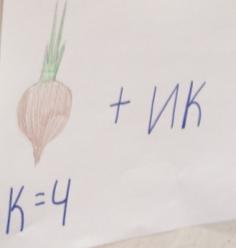 + ИК
К=Ч